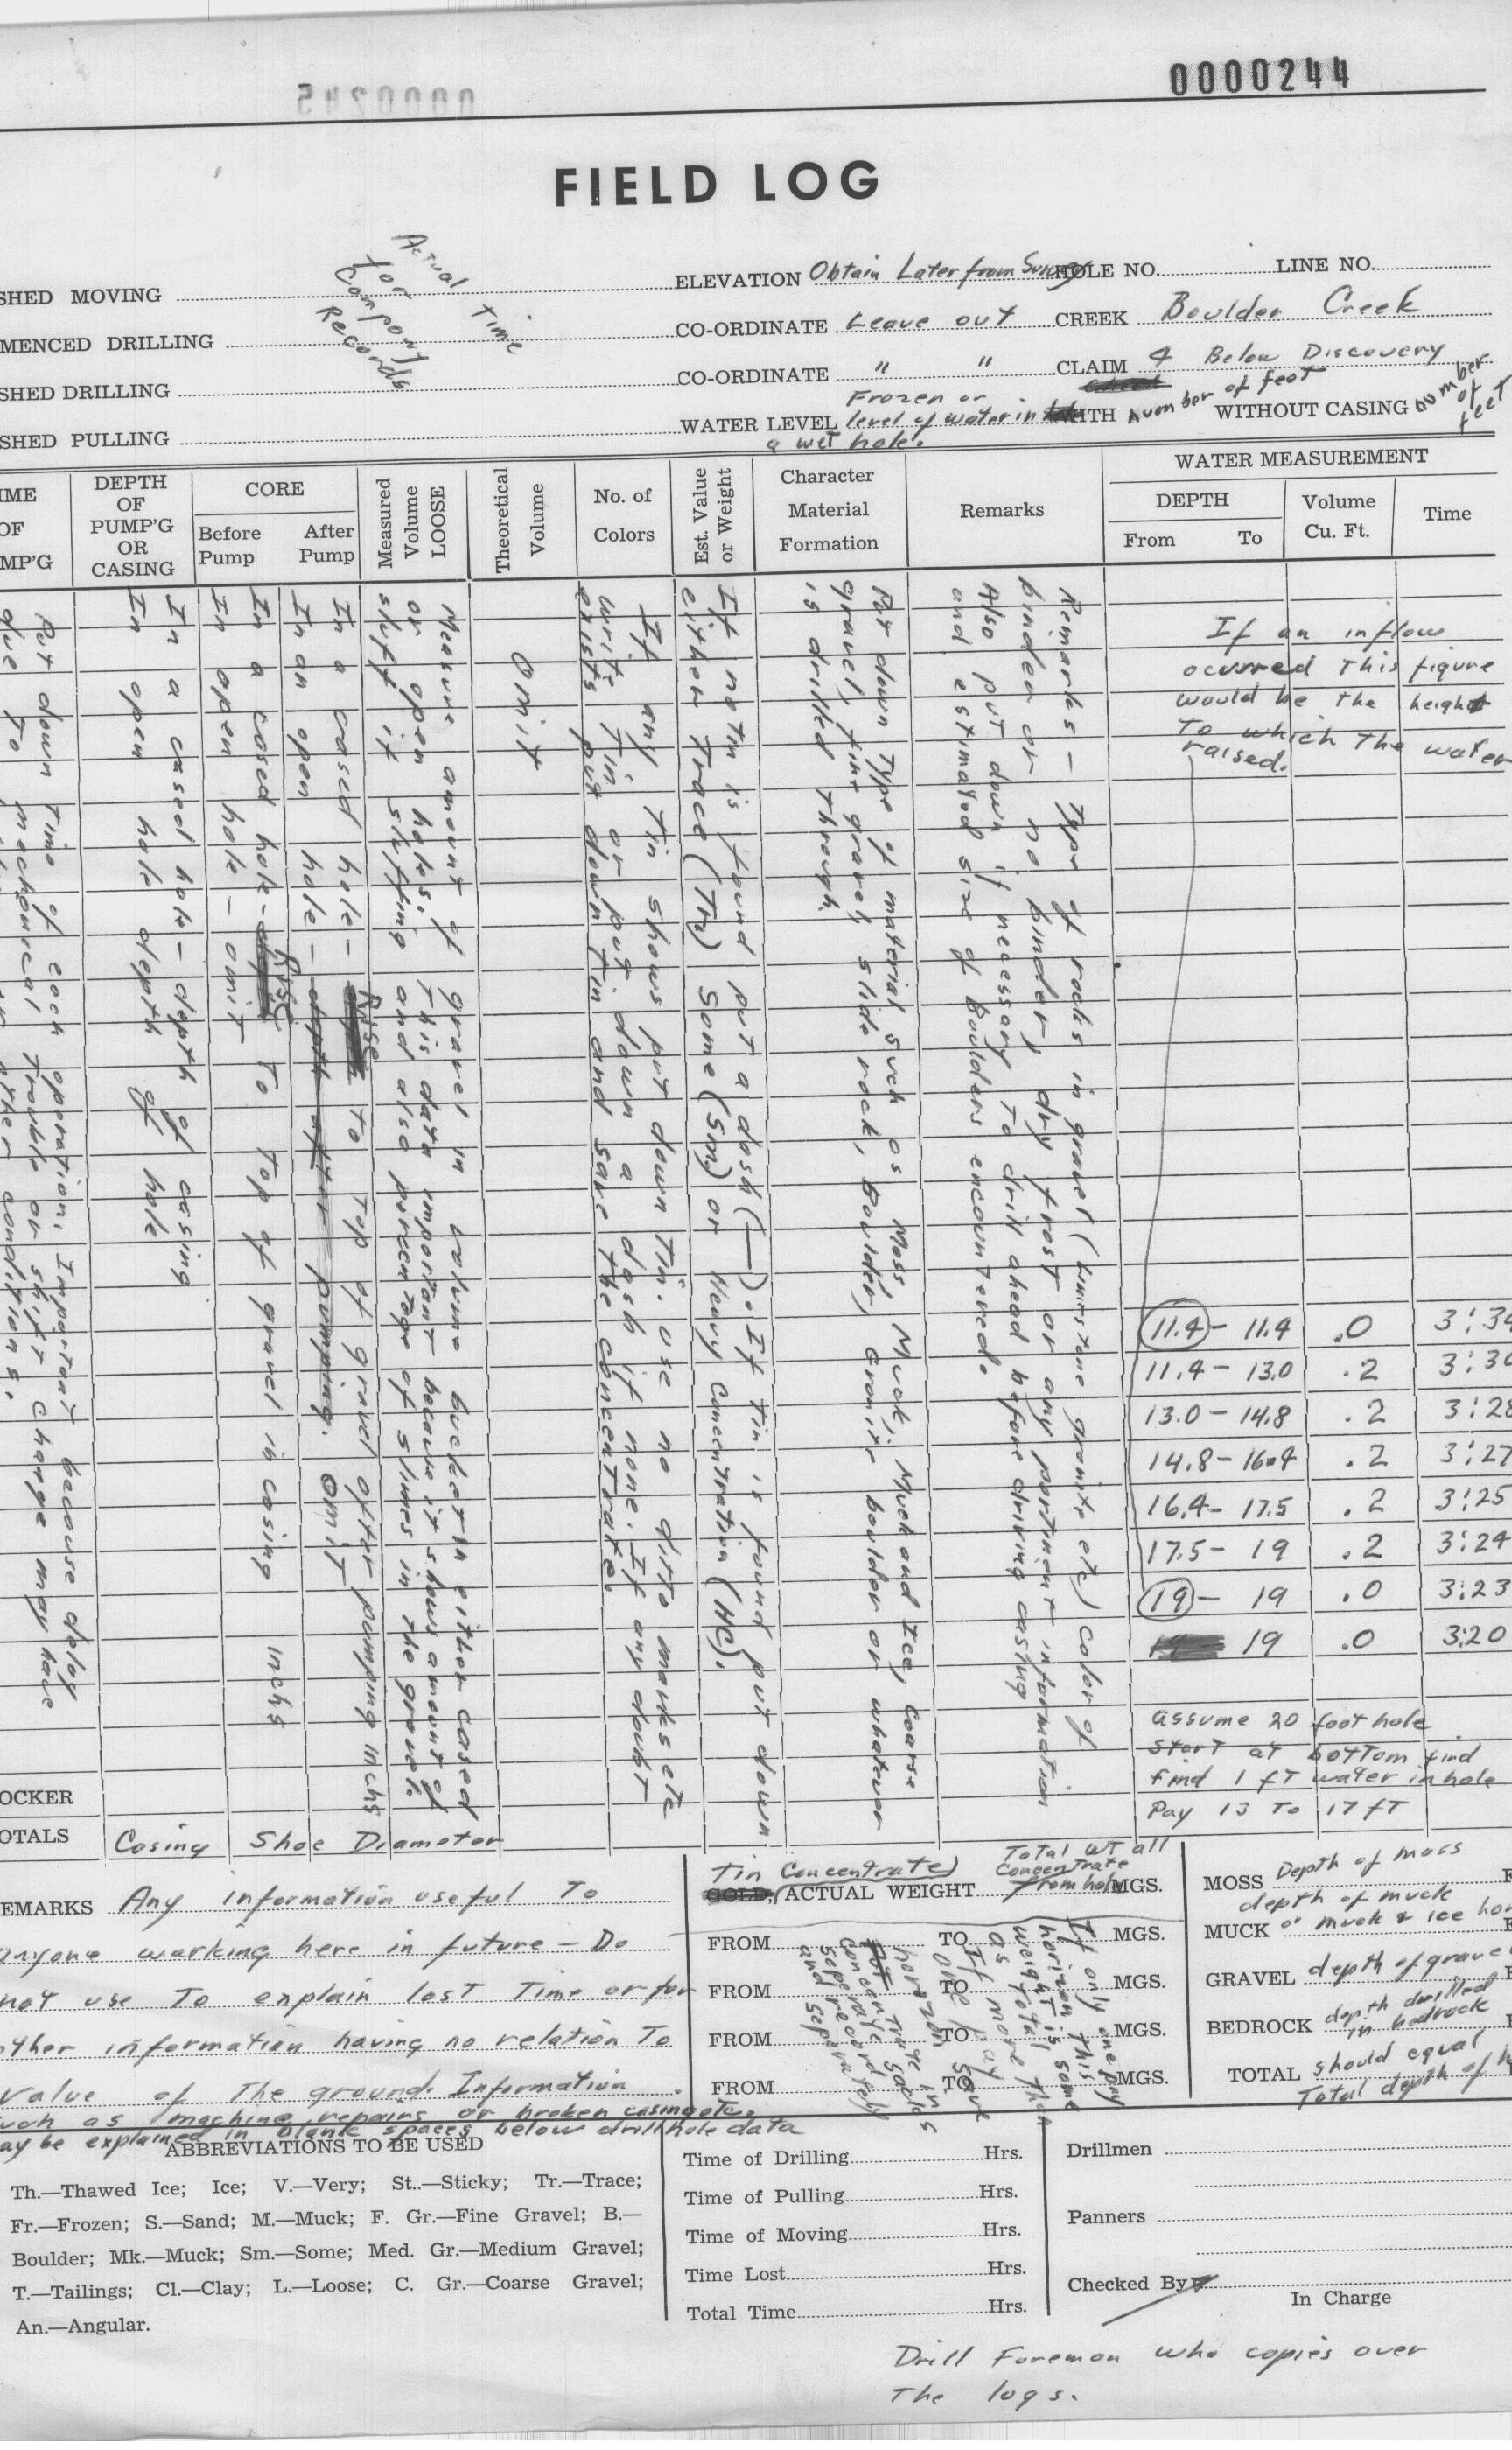 0000244
0000245
FIELD LOG
SHED MOVING
MENCED DRILLING
SHED DRILLING
SHED PULLING
Actual Time
for
Company
Records
ELEVATION Obtain Later from Survey HOLE NO. LINE NO.
CO-ORDINATE Leave out CREEK Boulder Creek
CO-ORDINATE " " CLAIM 4 Below Discovery
WATER LEVEL Frozen or
level of water in
a wet hole.
WITH number of feet WITHOUT CASING number of feet
IME
OF
MP'G
DEPTH
OF
PUMP'G
OR
CASING
CORE
Before
Pump
After
Pump
Measured
Volume
LOOSE
Theoretical
Volume
No. of
Colors
Est. Value
or Weight
Character
Material
Formation
Remarks
WATER MEASUREMENT
DEPTH
From To
Volume
Cu. Ft.
Time
Put down Time of each operation. Important because delay
due to mechanical trouble or shift change may have
In a cased hole - depth of casing
In open hole depth of hole
In a cased hole - Rise To Top of gravel in casing Inchs
In open hole - omit
In a cased hole - Rise To Top of gravel after pumping Inchs
In an open hole - depth after pumping. omit
Measure amount of gravel in volume bucket in either cased
or open holes. This data important because it shows amount of
sluff if sluffing and also percentage of slimes in the gravel.
omit
If any Tin shows put down Tin. use no ditto marks etc
write Tin or put down a dash if none. If any doubt
exists put down Tin and save the concentrate.
If no tin is found put a dash (—). If Tin is found put down
either Trace (Tr) Some (Sm) or Heavy Concentration (HC).
Put down Type of material such as Moss, Muck, Muck and Ice, Coarse
gravel, fine gravel, slide rock, Boulder, Granite boulder or whatever
is drilled through.
Remarks - Type of rocks in gravel (Limestone granite etc) color of
binder or no binder, dry frost or any pertinent information
Also put down if necessary To drill ahead before driving casing
and estimated size of Boulders encountered.
If an inflow
ocurred This figure
would be The height
To which The water
raised.
11.4 - 11.4 .0 3:34
11.4 - 13.0 .2 3:30
13.0 - 14.8 .2 3:28
14.8 - 16.4 .2 3:27
16.4 - 17.5 .2 3:25
17.5 - 19 .2 3:24
19 - 19 .0 3:23
19 .0 3:20
assume 20 foot hole
Start at bottom find
find 1 ft water in hole
Pay 13 To 17 ft
OCKER
OTALS Casing Shoe Diameter
EMARKS Any information useful To
anyone working here in future - Do
not use To explain lost Time or for
other information having no relation To
value of The ground. Information
such as machine repairs or broken casing etc.
may be explained in blank spaces below drill hole data
Tin Concentrate
GOLD, ACTUAL WEIGHT Total WT all
Concentrate
from hole MGS.
FROM TO MGS.
FROM TO MGS.
FROM TO MGS.
FROM TO MGS.
If only one pay
horizon this
weight is same
as total
If more than
one pay
horizon save
concentrate in
separate sacks
and record
seperately
MOSS Depth of moss
MUCK depth of muck
or muck & ice
GRAVEL depth of gravel
BEDROCK depth drilled
in bedrock
TOTAL should equal
Total depth of
ABBREVIATIONS TO BE USED
Th.—Thawed Ice; Ice; V.—Very; St..—Sticky; Tr.—Trace;
Fr.—Frozen; S.—Sand; M.—Muck; F. Gr.—Fine Gravel; B.—
Boulder; Mk.—Muck; Sm.—Some; Med. Gr.—Medium Gravel;
T.—Tailings; Cl.—Clay; L.—Loose; C. Gr.—Coarse Gravel;
An.—Angular.
Time of Drilling Hrs.
Time of Pulling Hrs.
Time of Moving Hrs.
Time Lost Hrs.
Total Time Hrs.
Drillmen
Panners
Checked By
In Charge
Drill Foreman who copies over
The logs.